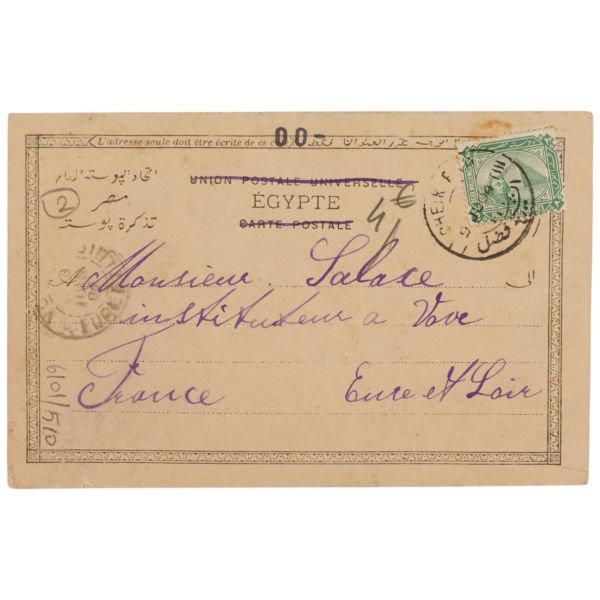 L'adresse seule doit être écrite de ce c
العنوان فقط
00-
اتحاد البوستة العام
مصر
تذكرة بوسته
UNION POSTALE UNIVERSELLE
ÉGYPTE
CARTE POSTALE
4 €
2
CHEIK F
فضل
الى
A Monsieur Salace
instituteur a Vove
France Eure et Loir
6101/510